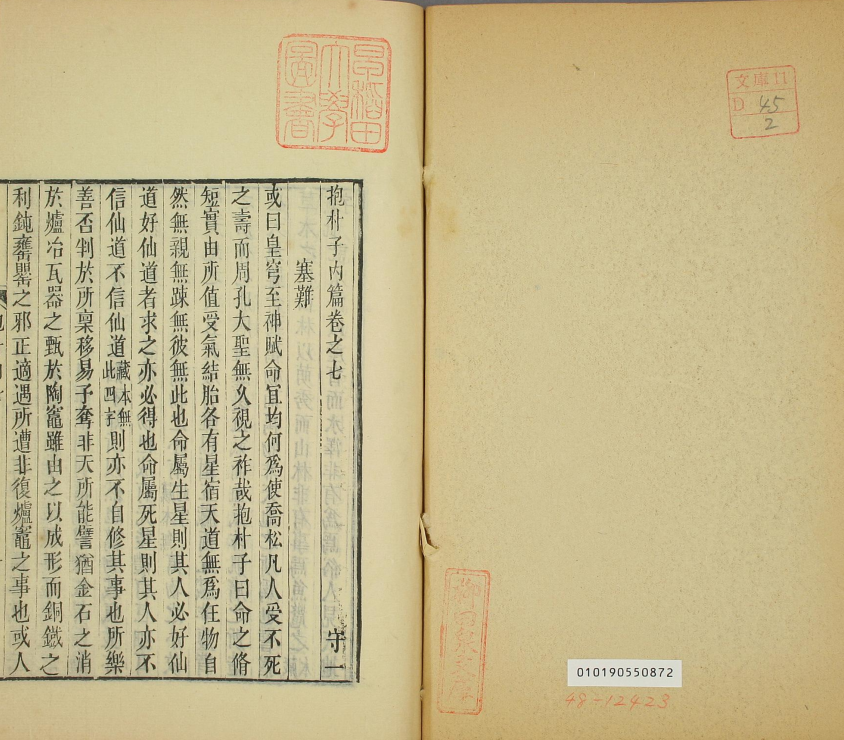 文庫11
D 45
2
柳田泉文庫
010190550872
48-12423
早稲田
大學
圖書
抱朴子內篇卷之七 守一
塞難
或曰皇穹至神賦命宜均何爲使喬松凡人受不死
之壽而周孔大聖無久視之祚哉抱朴子曰命之脩
短實由所値受氣結胎各有星宿天道無爲任物自
然無親無疎無彼無此也命屬生星則其人必好仙
道好仙道者求之亦必得也命屬死星則其人亦不
信仙道不信仙道藏本無此四字則亦不自修其事也所樂
善否判於所稟移易予奪非天所能譬猶金石之消
於爐冶瓦器之甄於陶竈雖由之以成形而銅鐵之
利鈍罋罌之邪正適遇所遭非復爐竈之事也或人